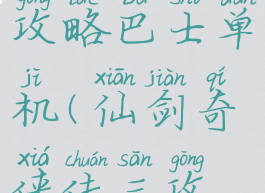 gōng lüè bā shì dān
攻略巴士单
jī xiān jiàn qí
机(仙剑奇
xiá chuán sān gōng
侠传三攻